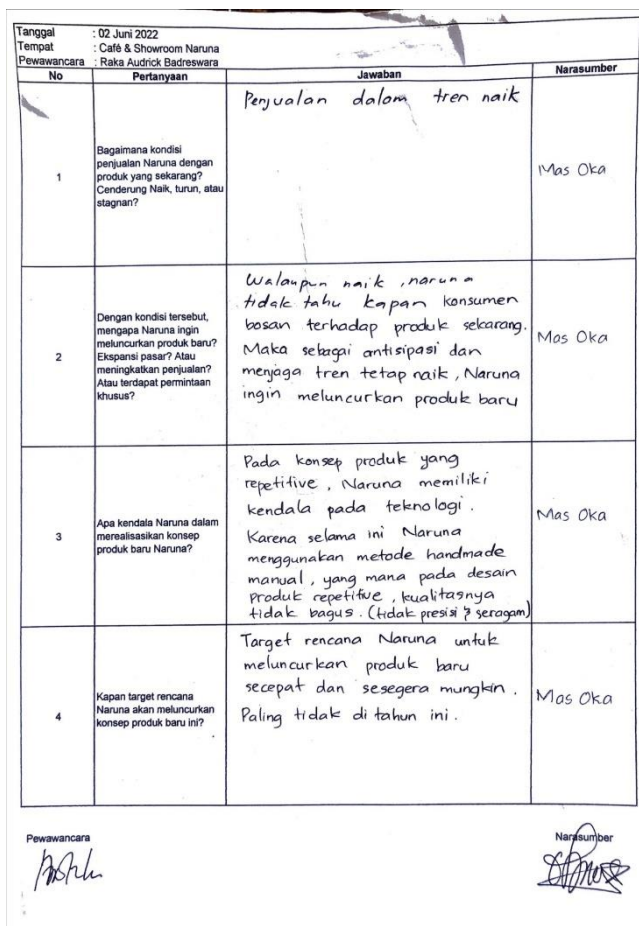 Tanggal : 02 Juni 2022
Tempat : Café & Showroom Naruna
Pewawancara : Raka Audrick Badreswara
No Pertanyaan Jawaban Narasumber
1
Bagaimana kondisi
penjualan Naruna dengan
produk yang sekarang?
Cenderung Naik, turun, atau
stagnan?
Penjualan dalam tren naik
Mas Oka
2
Dengan kondisi tersebut,
mengapa Naruna ingin
meluncurkan produk baru?
Ekspansi pasar? Atau
meningkatkan penjualan?
Atau terdapat permintaan
khusus?
Walaupun naik, naruna
tidak tahu kapan konsumen
bosan terhadap produk sekarang.
Maka sebagai antisipasi dan
menjaga tren tetap naik, Naruna
ingin meluncurkan produk baru
Mas Oka
3
Apa kendala Naruna dalam
merealisasikan konsep
produk baru Naruna?
Pada konsep produk yang
repetitive, Naruna memiliki
kendala pada teknologi.
Karena selama ini Naruna
menggunakan metode handmade
manual, yang mana pada desain
produk repetitive, kualitasnya
tidak bagus. (tidak presisi & seragam)
Mas Oka
4
Kapan target rencana
Naruna akan meluncurkan
konsep produk baru ini?
Target rencana Naruna untuk
meluncurkan produk baru
secepat dan sesegera mungkin.
Paling tidak di tahun ini.
Mas Oka
Pewawancara Narasumber